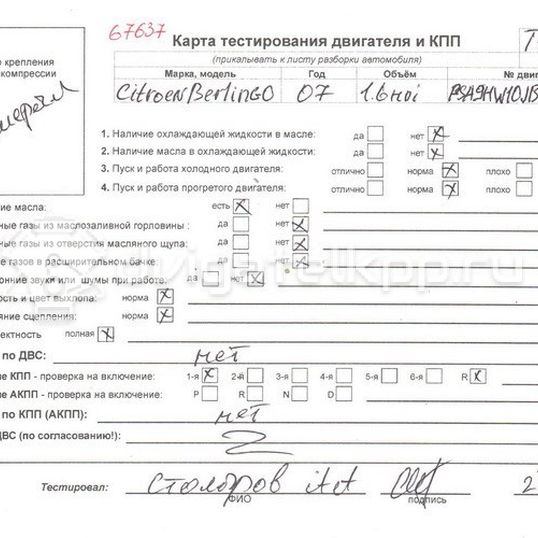 67637
Карта тестирования двигателя и КПП
(прикалывать к листу разборки автомобиля)
о крепления
компрессии
Марка, модель Год Объём № двиг
Citroen Berlingo 07 1.6 hdi PSA9HW10JB
1. Наличие охлаждающей жидкости в масле: да нет X
2. Наличие масла в охлаждающей жидкости: да нет X
3. Пуск и работа холодного двигателя: отлично норма X плохо
4. Пуск и работа прогретого двигателя: отлично норма X плохо
ие масла: есть X нет
ные газы из маслозаливной горловины : да нет X
ные газы из отверстия масляного щупа: да нет X
е газов в расширительном бачке: да нет X
онние звуки или шумы при работе: да нет X
ость и цвет выхлопа: норма X
яние сцепления: норма X
ектность полная X
по ДВС: нет
ие КПП - проверка на включение: 1-я X 2-я 3-я 4-я 5-я 6-я R X
ие АКПП - проверка на включение: P R N D
по КПП (АКПП): нет
ДВС (по согласованию!):
Тестировал: Столяров
ФИО подпись
vigatelkpp.ru